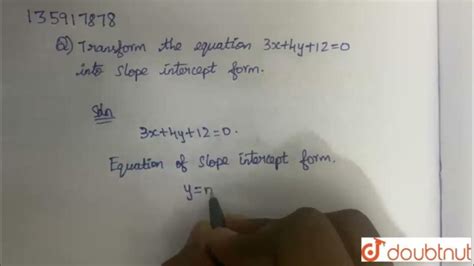 135917878
Q) Transform the equation 3x+4y+12=0
into slope intercept form.
Soln
3x+4y+12=0.
Equation of slope intercept form.
y=m
doubtnut